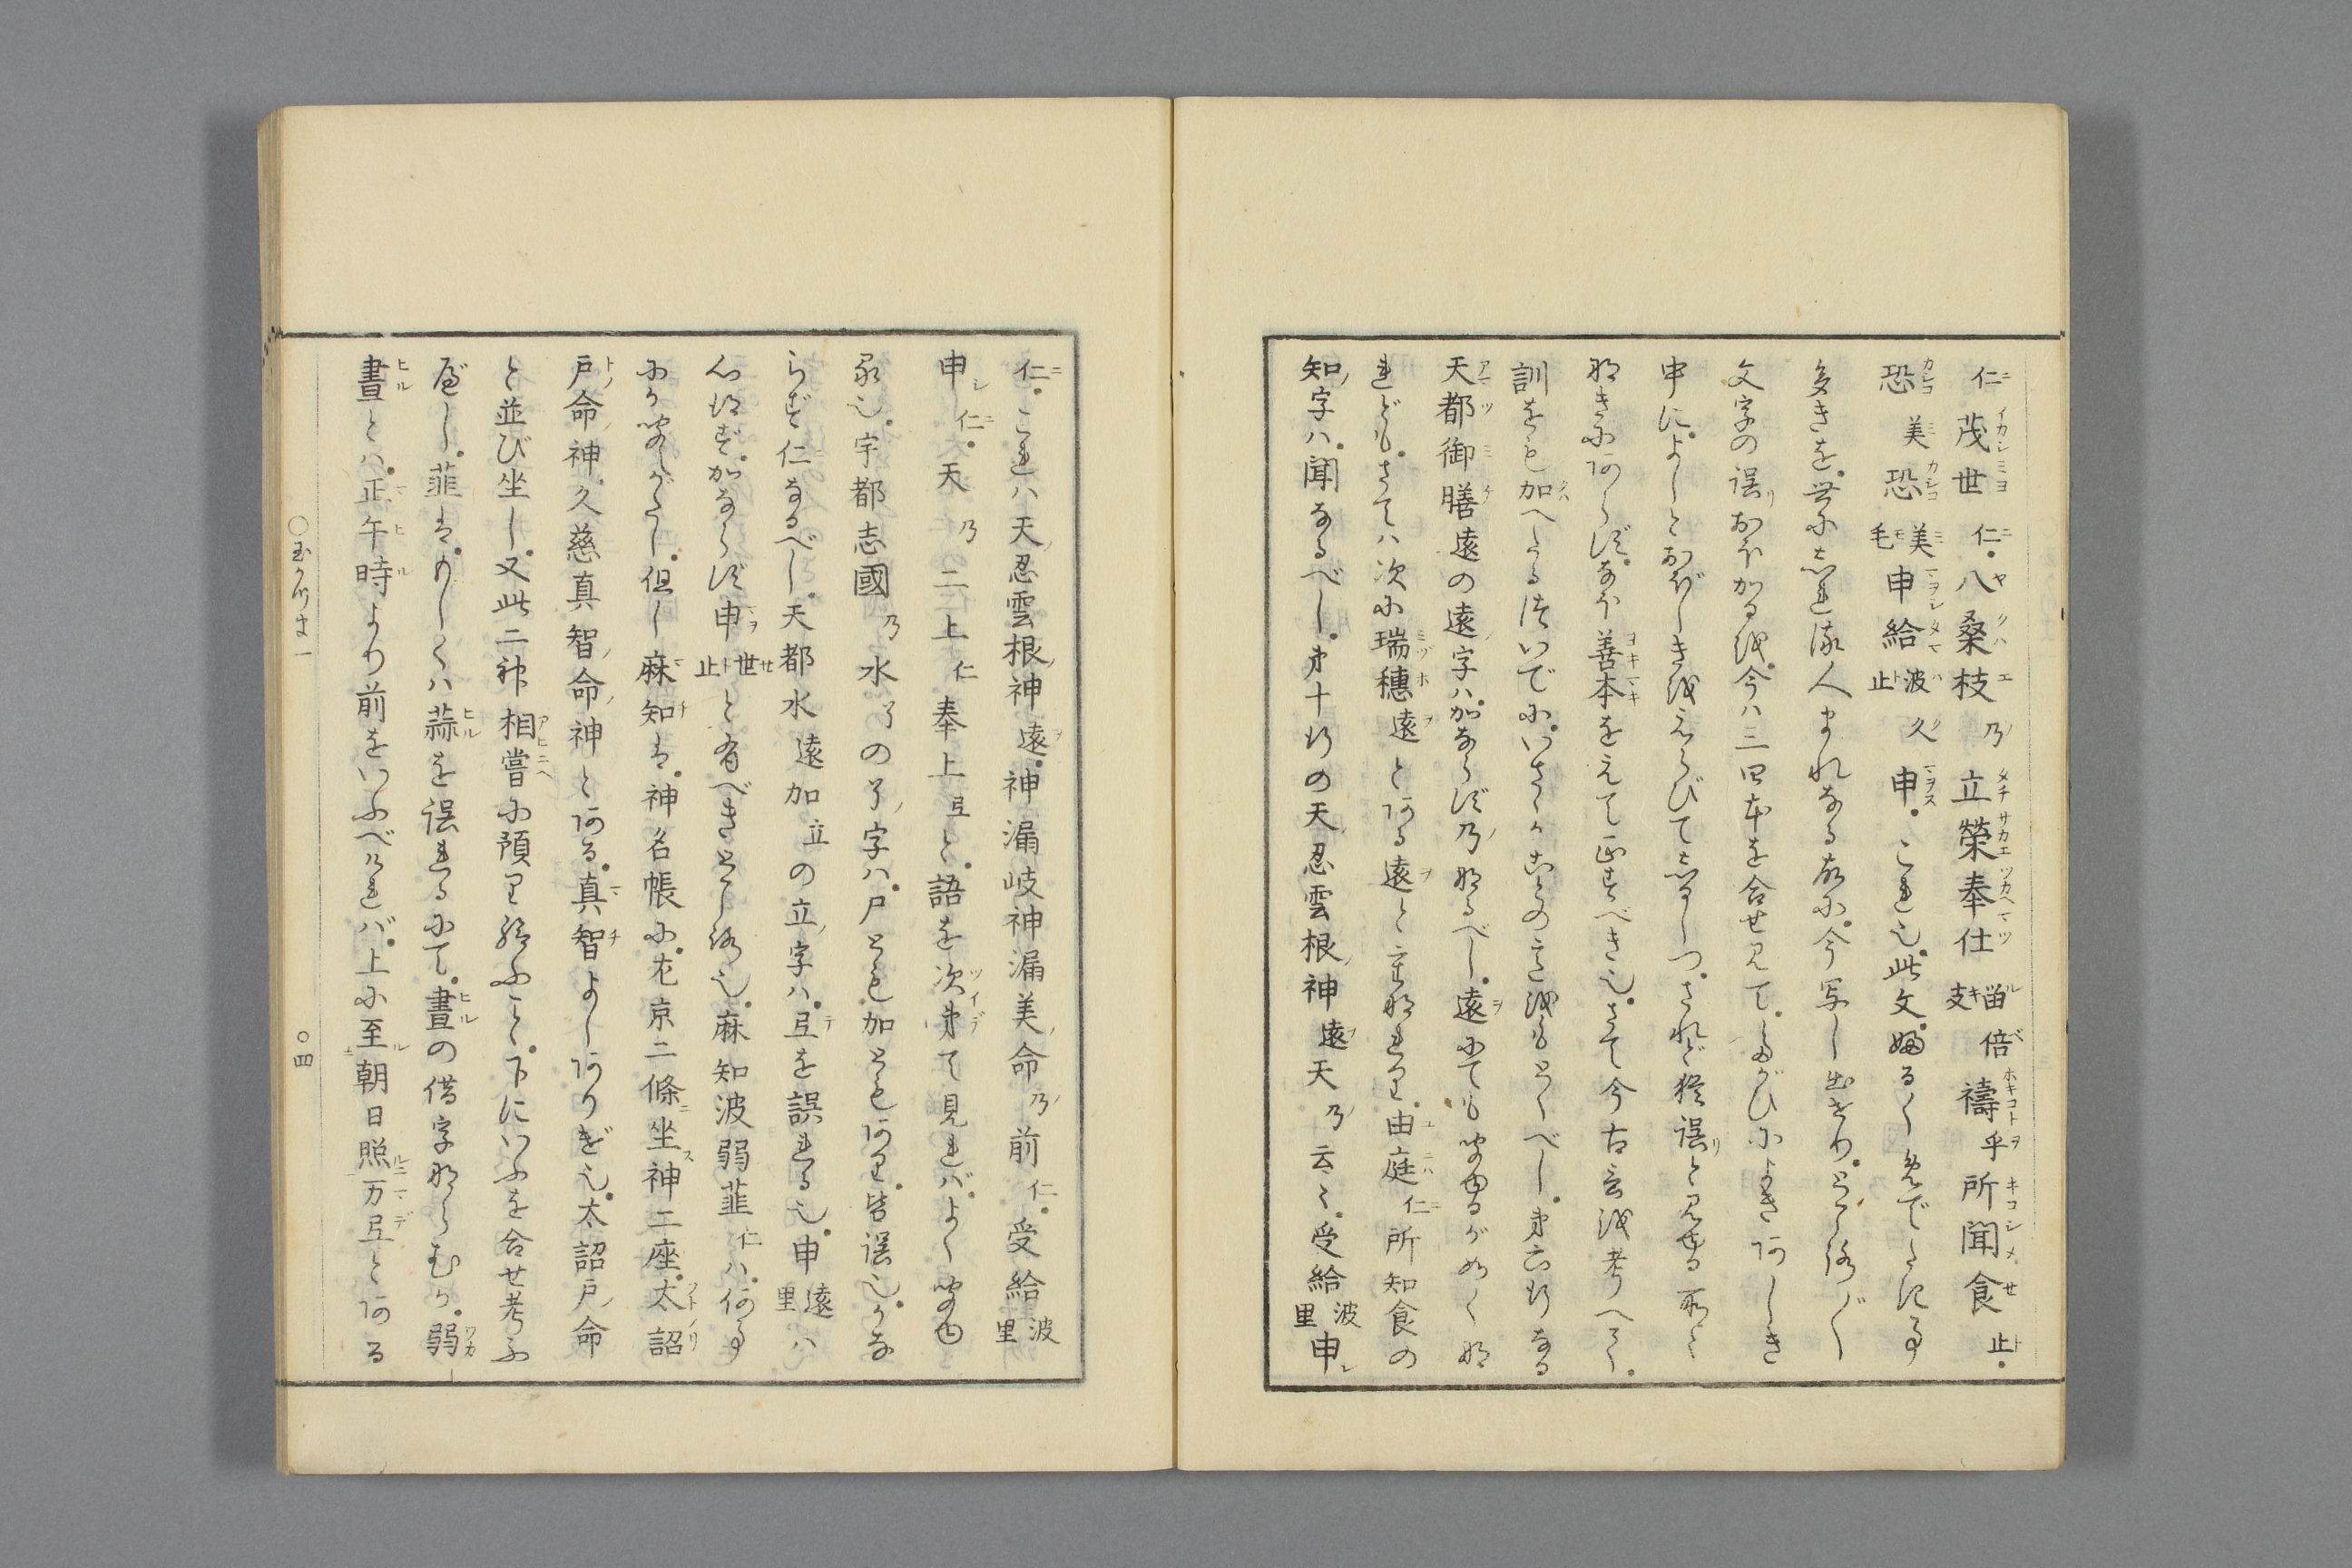 仁茂世仁八桑枝乃立榮奉仕留支倍禱乎所聞食止
恐美恐美毛申給波止久申これ也此文婦るくめでたき事
多きを世にしれる人まれなる故に今写し出せりところ〴〵
文字の誤りおほかるを今は三四本を合せ見てたがひによきあしき
中によしとおぼしきをえらびてしるしつされど猶誤りと見ゆる所々
なきにあらずなほ善本をえて正すべき也さて今古言を考へて
訓をも加へたるついでにいさゝかことの意をもとくべし第六行なる
天都御膳遠の遠字ハ加ならず乃なるべし遠にても聞ゆるがごとくな
れどもさてハ次に瑞穂遠とある遠と重なれり由庭仁所知食の
知字ハ聞なるべし第十行の天忍雲根神遠天乃云々受給波里申
仁これハ天忍雲根神遠神漏岐神漏美命乃前仁受給波里
申仁天乃二上仁奉上弖と語を次第て見れバよく聞ゆ
る也宇都志國乃水了の了字ハ戸とも加ともあり皆誤也かな
らず仁なるべし天都水遠加立の立字ハ弖を誤れる也申遠里ハ
心得ず加ならず申世止と有べきところ也麻知波弱韮仁ハ何事
にか聞えがたし但し麻知は神名帳に左京二條坐神二座太詔
戸命神久慈真智命神とある真智よしありげ也太詔戸命
と並び坐し又此二神相嘗に預り給ふこと下にいふを合せ考ふ
べし韮はもしくハ蒜を誤れるにて晝の借字ならむか弱
晝とハ正午時より前をいふべけれバ上に至朝日照万弖とある
○玉かつま一　○四